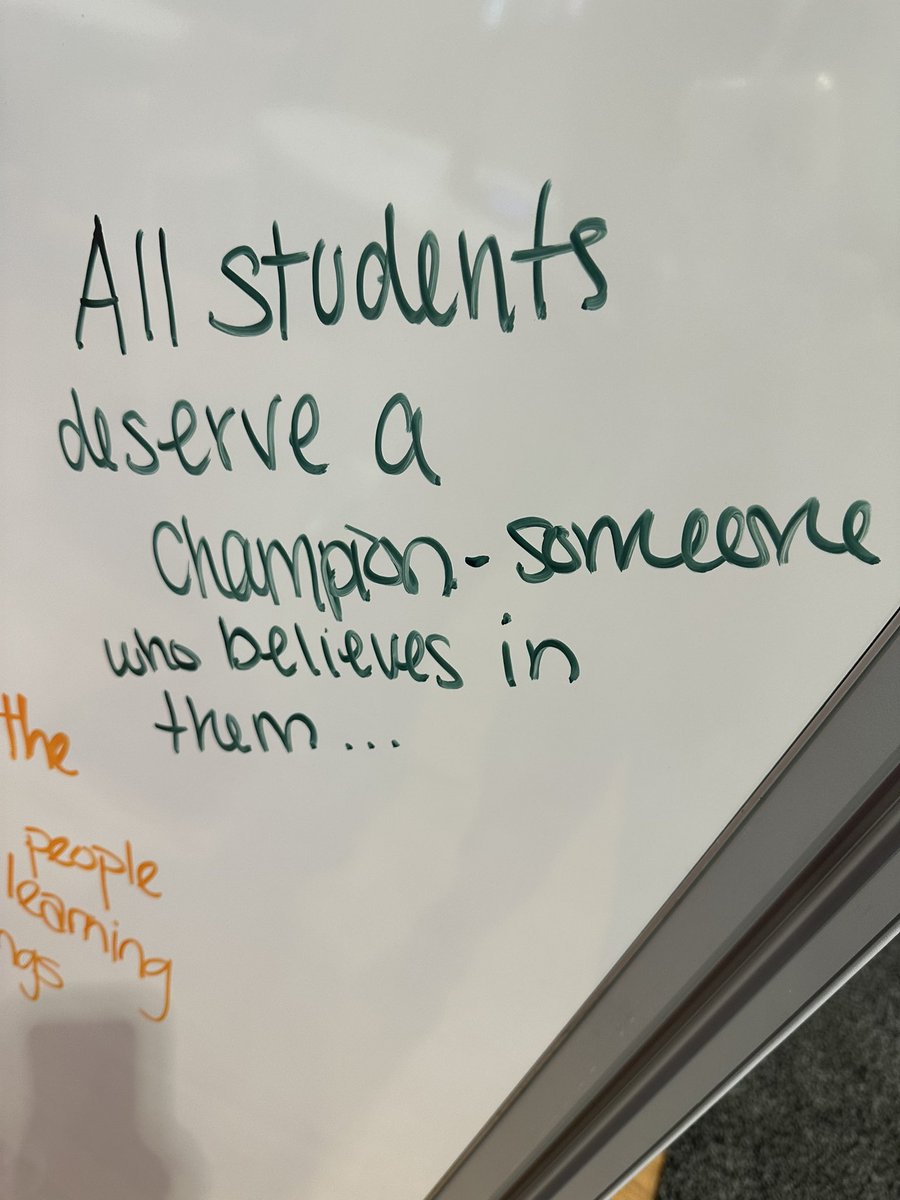 All students
deserve a
champion - someone
who believes in
them...
the
people
learning
ngs